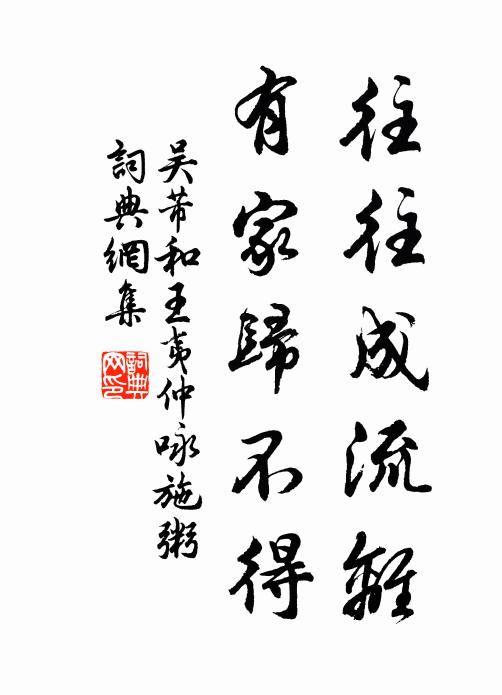 往往成流離
有家歸不得
吴芾和王夷仲咏施粥
詞典網集
詞典
网印